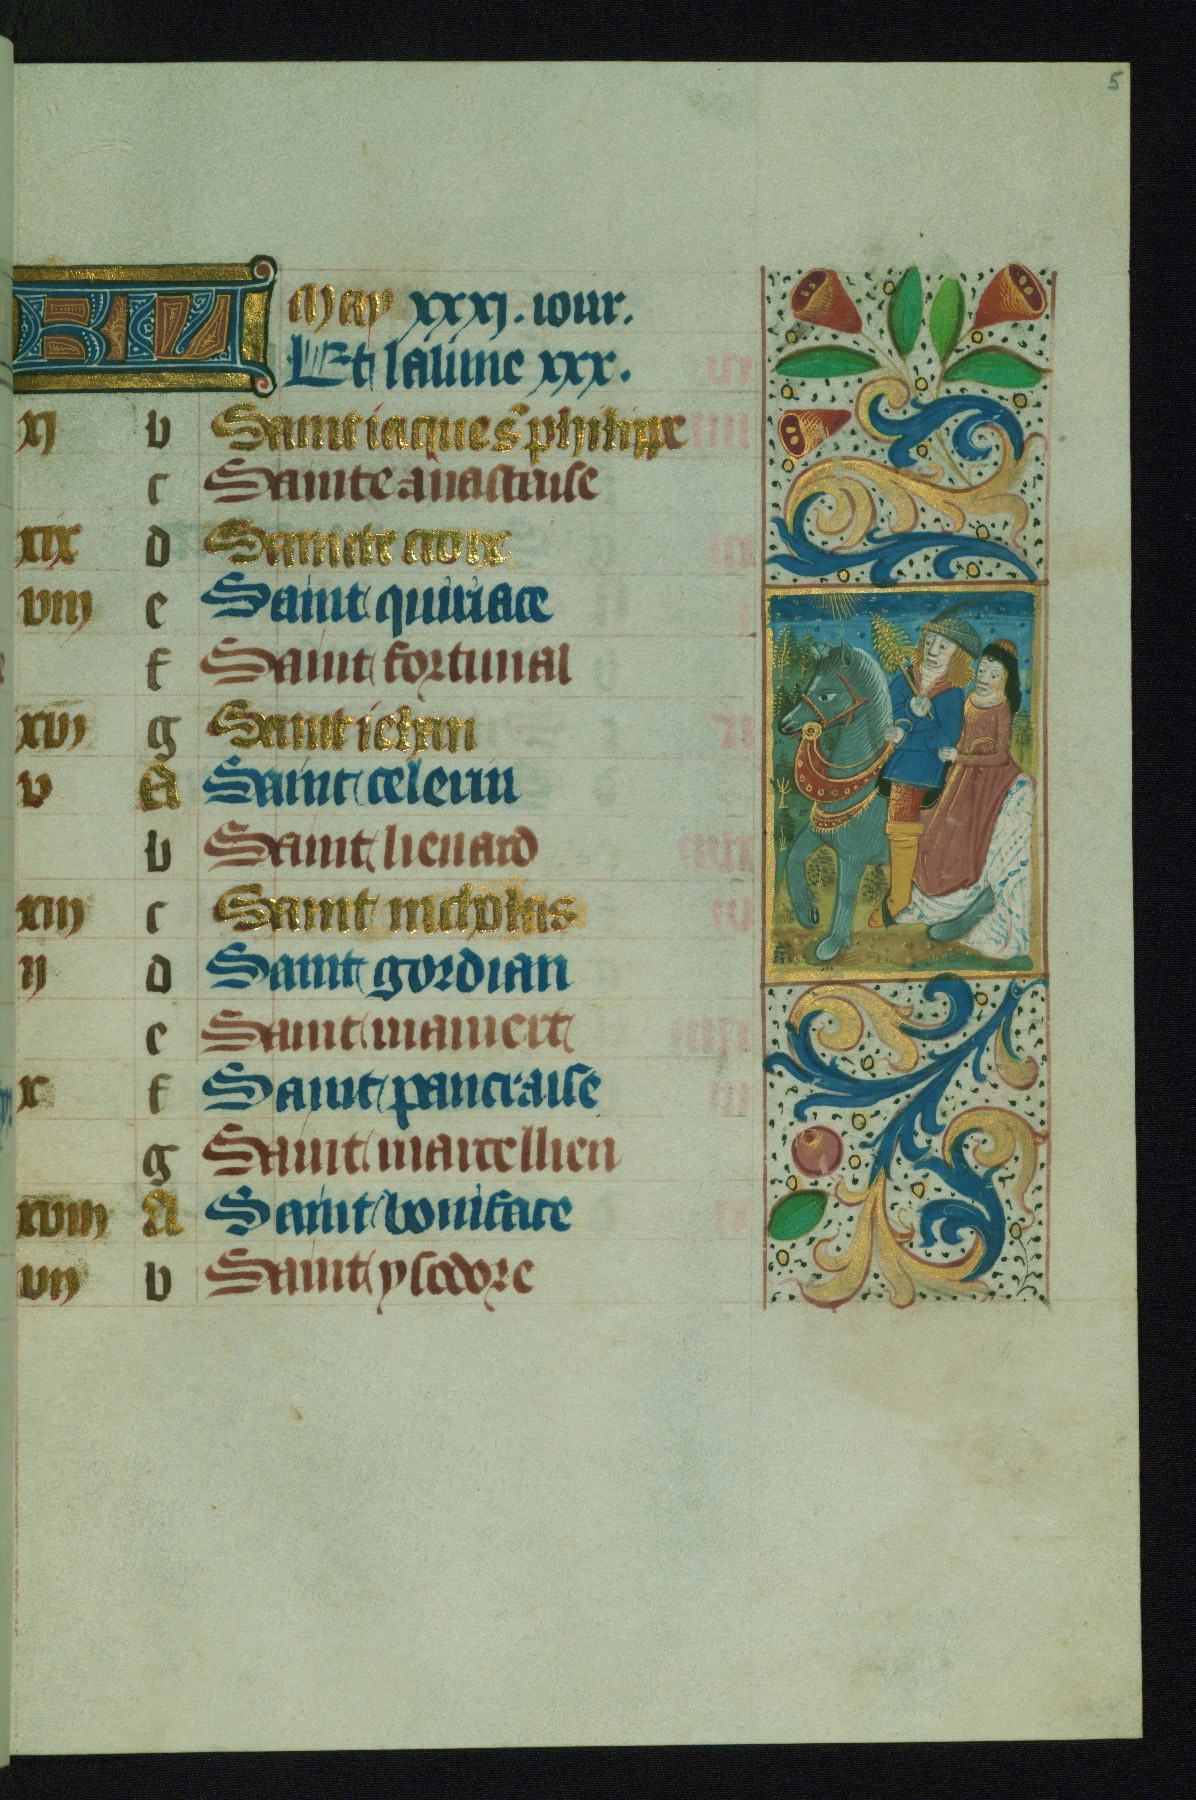 5
KL May xxxi. iour.
Et la lune xxx.
xi b Saint iaques s̃ philippe
c Sainte anastaise
xix d Sainte croix
viii e Saint quiriace
f Saint fortunal
xvi g Saint iehan
v A Saint celerin
b Saint lienard
xiii c Saint nicholas
ii d Saint gordian
e Saint mamert
x f Saint pancraise
g Saint marcellien
xviii A Saint boniface
vii b Saint ysodore